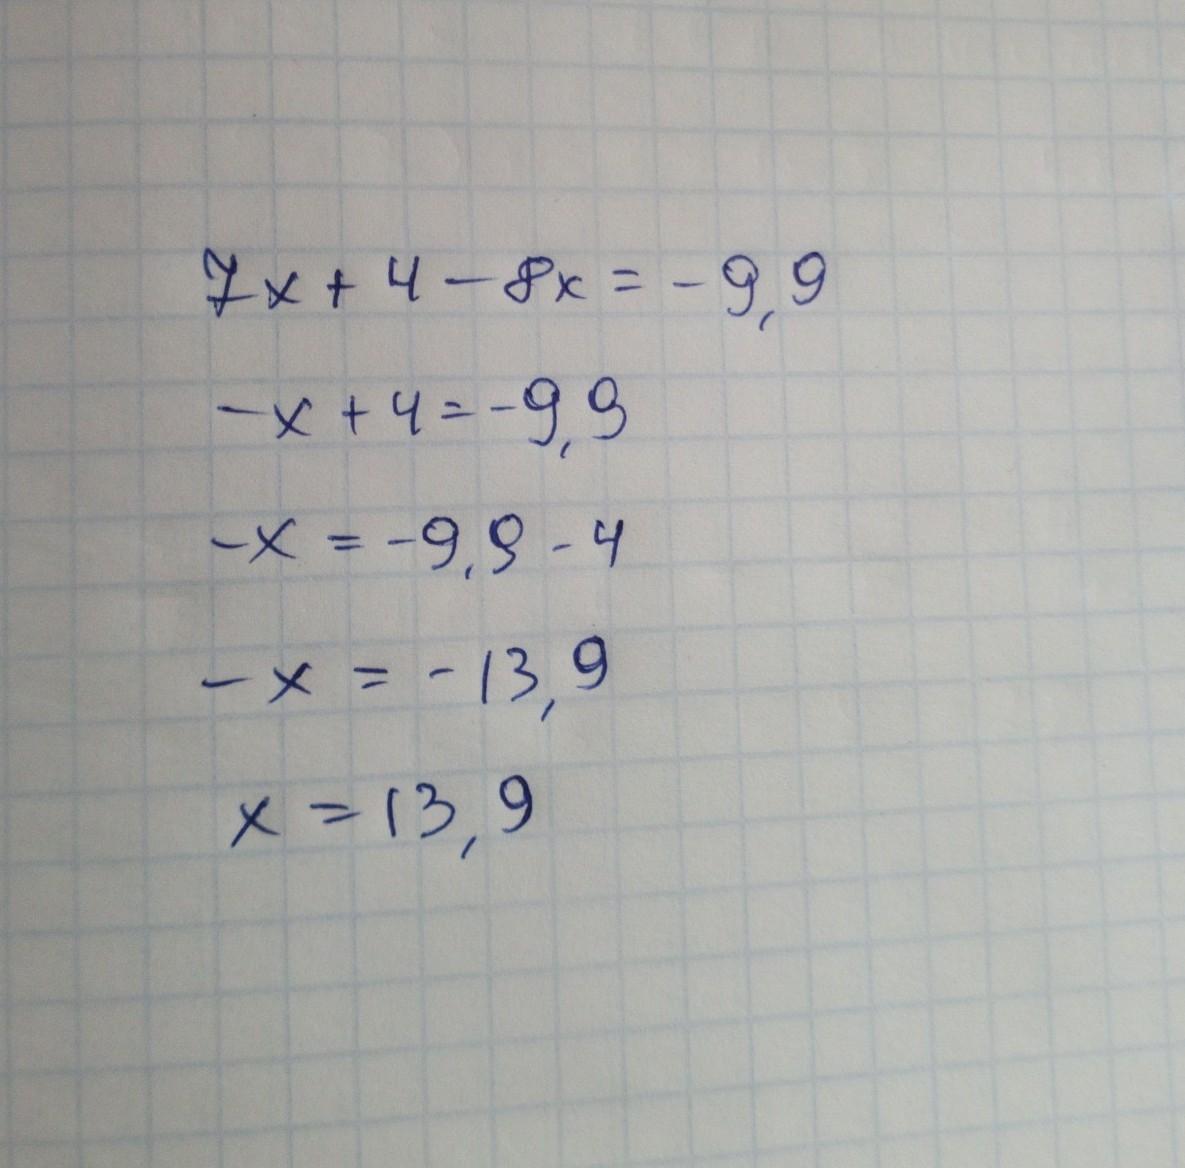 7x + 4 - 8x = -9,9
-x + 4 = -9,9
-x = -9,9 - 4
-x = -13,9
x = 13,9